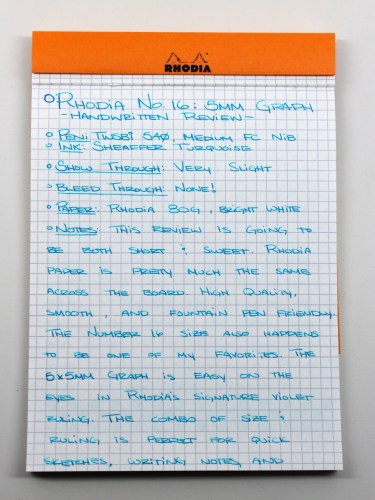 RHODIA
RHODIA No. 16: 5MM GRAPH
-HANDWRITTEN REVIEW-
PEN: TWSBI 540, MEDIUM FC NIB
INK: SHEAFFER TURQUOISE
SHOW THROUGH: VERY SLIGHT
BLEED THROUGH: NONE!
PAPER: RHODIA 80G, BRIGHT WHITE
NOTES: THIS REVIEW IS GOING TO
BE BOTH SHORT & SWEET. RHODIA
PAPER IS PRETTY MUCH THE SAME
ACROSS THE BOARD. HIGH QUALITY,
SMOOTH, AND FOUNTAIN PEN FRIENDLY.
THE NUMBER 16 SIZE ALSO HAPPENS
TO BE ONE OF MY FAVORITES. THE
5x5MM GRAPH IS EASY ON THE
EYES IN RHODIA'S SIGNATURE VIOLET
RULING. THE COMBO OF SIZE &
RULING IS PERFECT FOR QUICK
SKETCHES, WRITING NOTES, AND